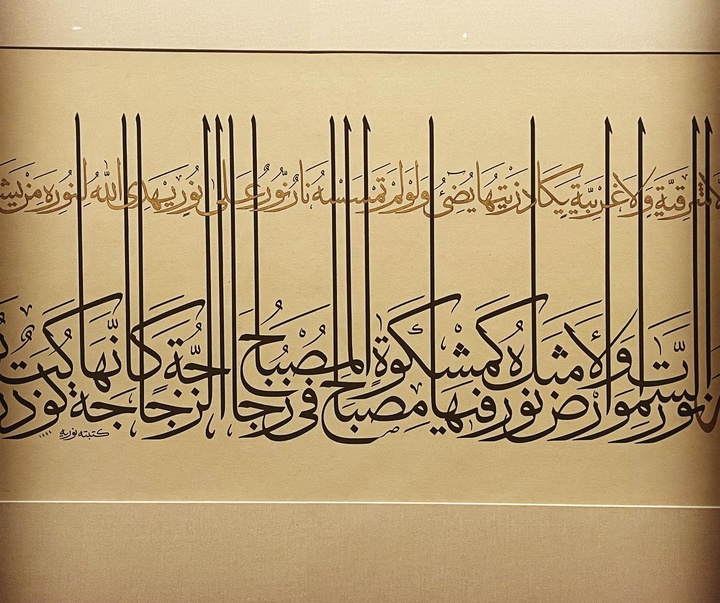 شرقية ولا غربية يكاد زيتها يضئ ولو لم تمسسه نار نور على نور يهدى الله لنوره من يش
نور السموات والأرض مثل نوره كمشكوة فيها مصباح المصباح فى زجاجة الزجاجة كأنها كوكب در
كتبته نوريه